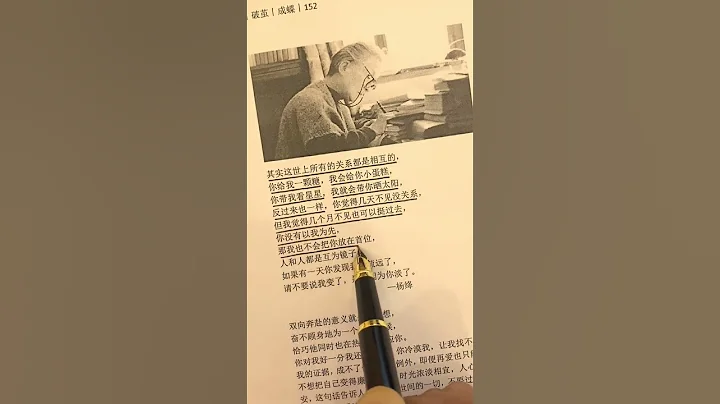 破茧丨成蝶丨152
其实这世上所有的关系都是相互的，
你给我一颗糖，我会给你小蛋糕，
你带我看星星，我就会带你晒太阳，
反过来也一样，你觉得几天不见没关系，
但我觉得几个月不见也可以挺过去，
你没有以我为先，
那我也不会把你放在首位，
人和人都是互为镜子
如果有一天你发现 远了，
请不要说我变了， 为你淡了。
—杨绛
双向奔赴的意义就 想，
奋不顾身地为一个
恰巧他同时也在热 你。
你对我好一分我还 你冷漠我，让我找不
我的证据，成不了 例外，即便再爱也只
不想把自己变得廉 时光浓淡相宜，人心
安，这句话告诉人 间的一切，不要过